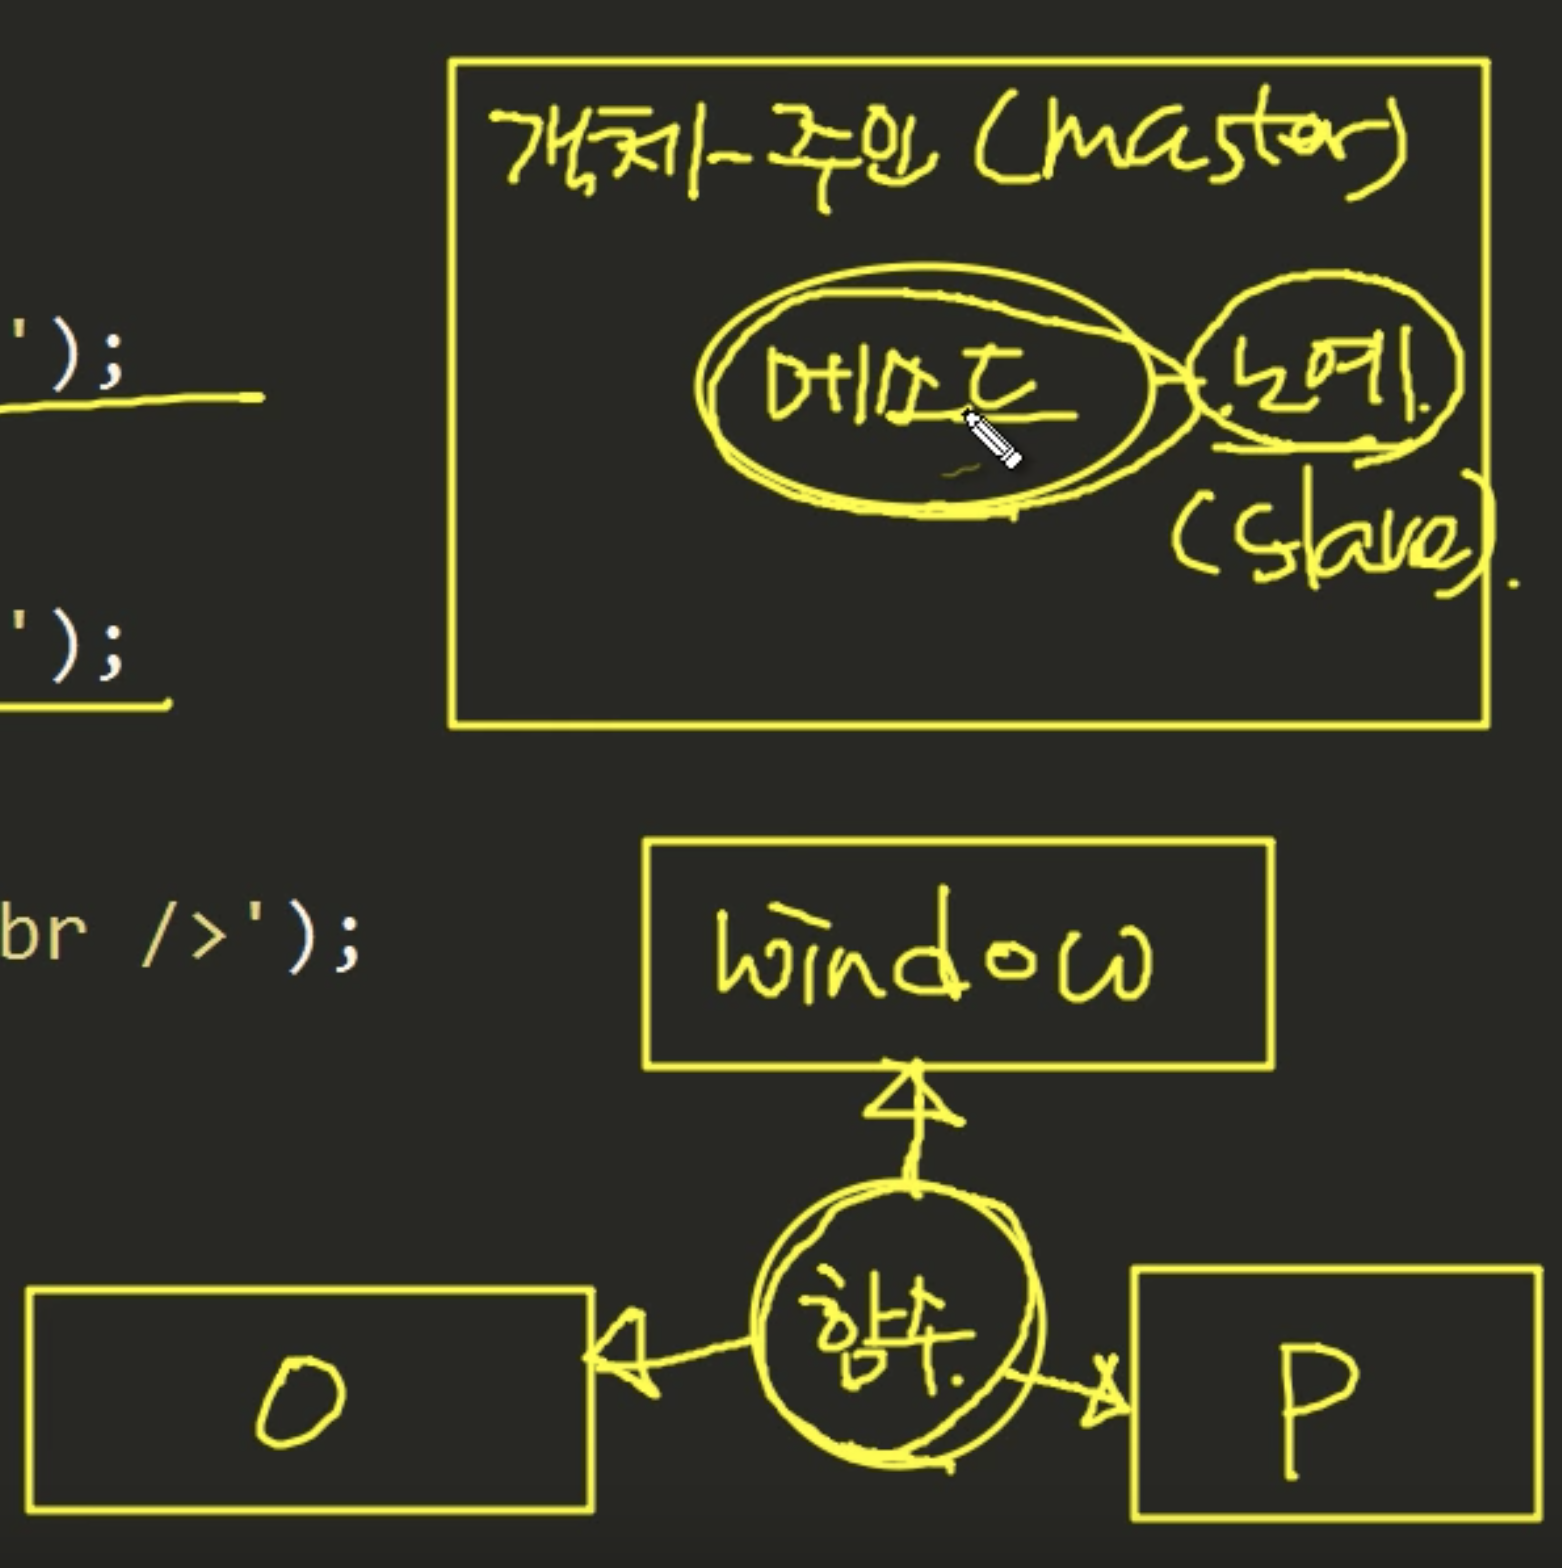 객체-주인 (master)
');
메소드 노예
(slave).
');
br />');
window
함수.
O
P